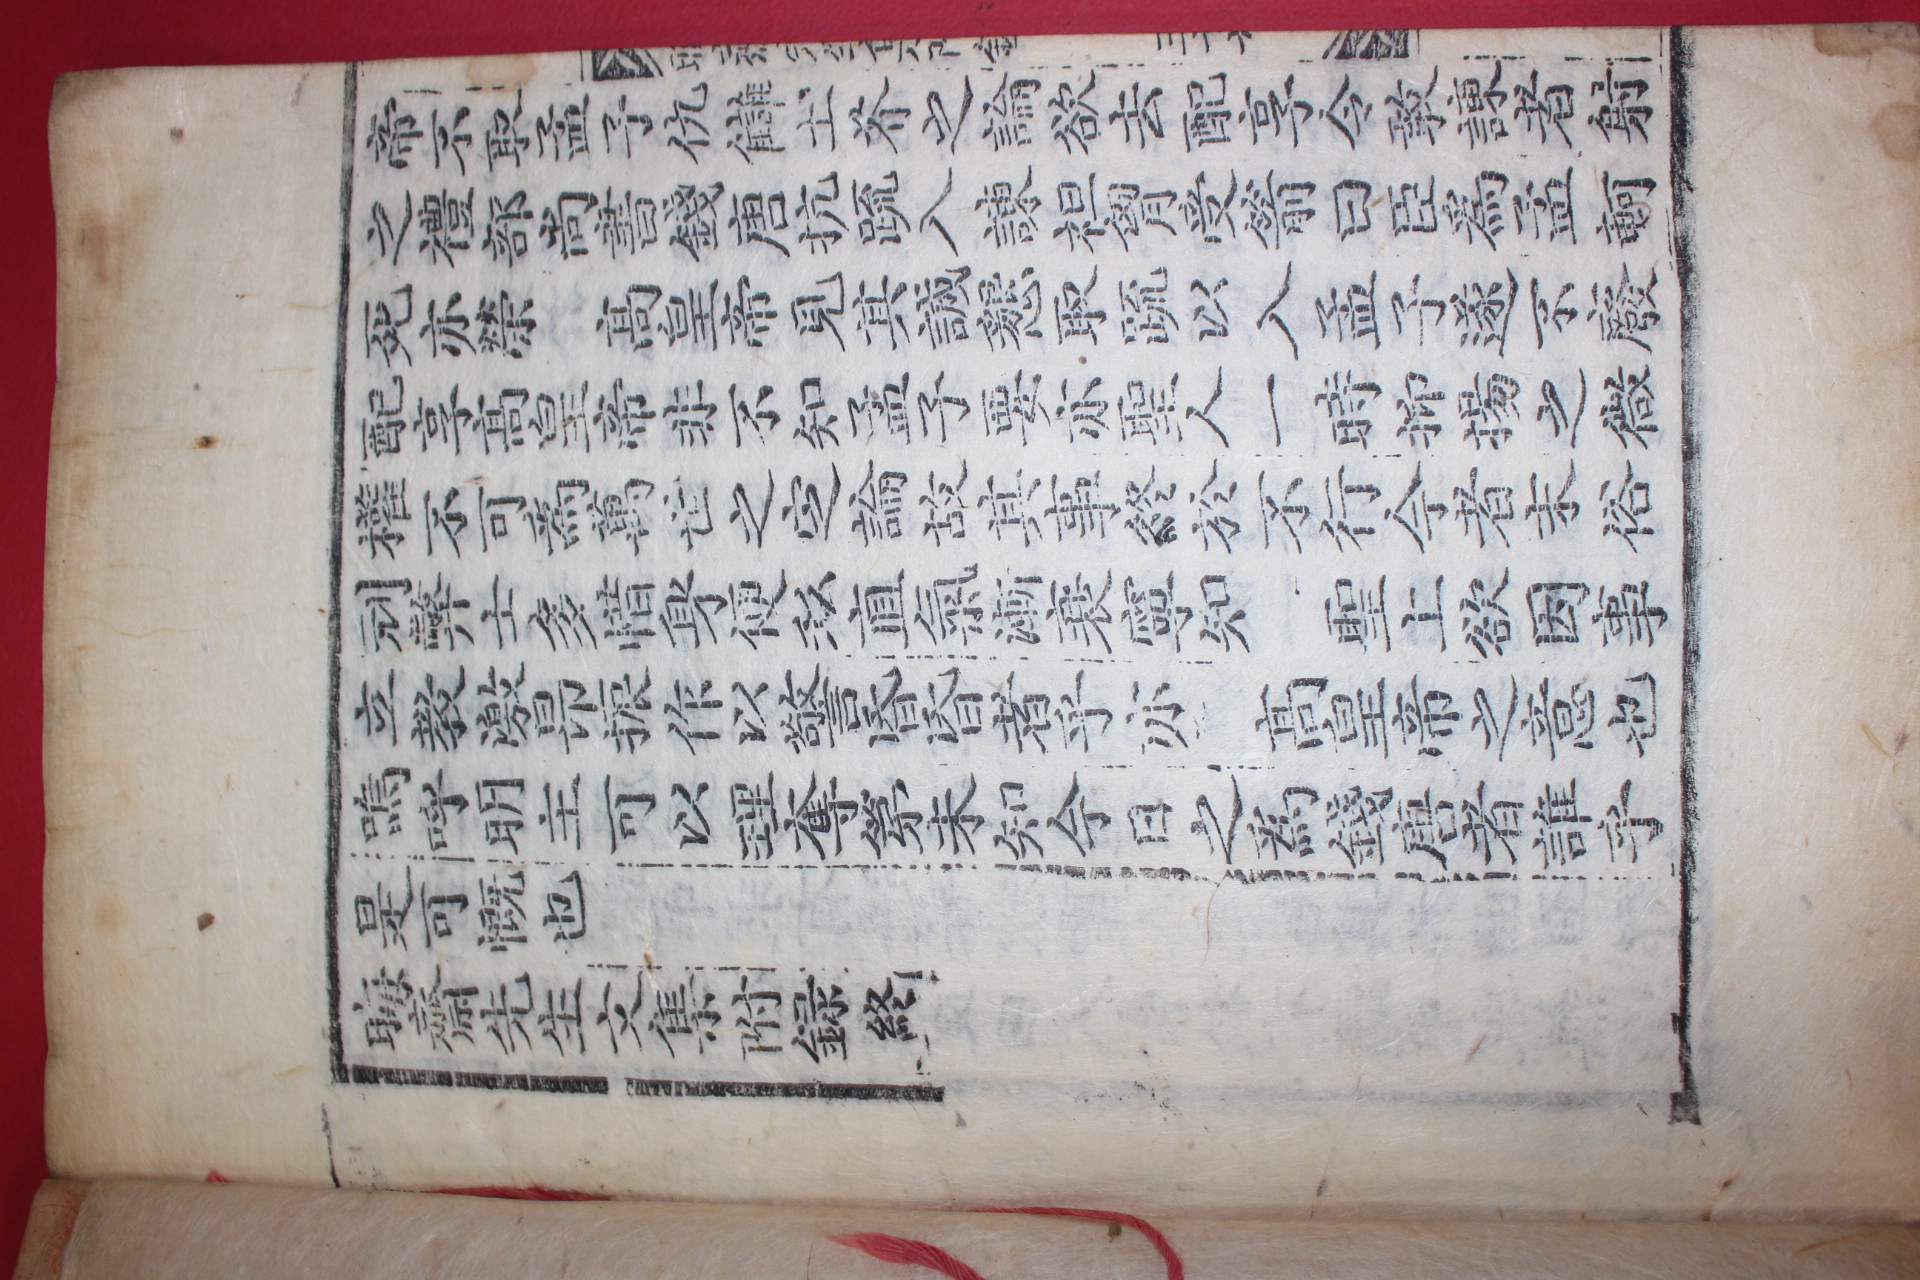 帝不取孟子仇讎土芥之論欲去配享令敢諫者射
之禮部尚書錢唐抗疏入諫袒胷受箭曰臣爲孟軻
死亦榮 高皇帝見其誠懇取疏以入孟子遂不廢
配享高皇帝非不知孟子要亦聖人一時抑揚之微
權不可為萬世之定論故其事終於不行今者末俗
刓弊士多惜身便私直氣漸衰寧知 聖上欲因事
立教激昂振作以警昏昏者乎亦 高皇帝之意也
嗚呼明主可以理奪第未知今日之爲錢唐者誰乎
是可慨也
晦齋先生文集附録終